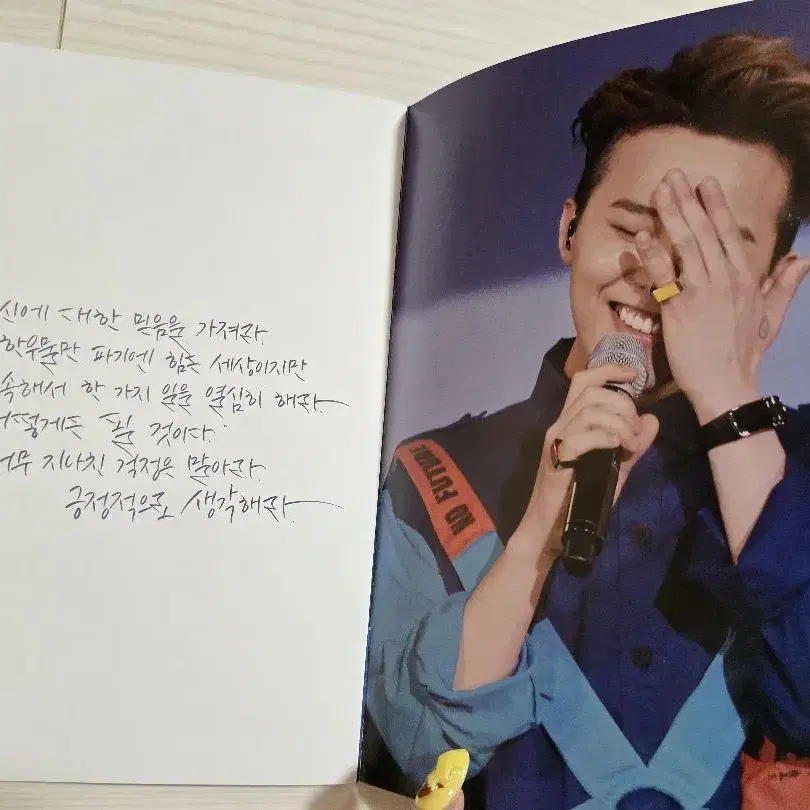 신에 대한 믿음을 가져라.
한우물만 파기엔 힘든 세상이지만
속해서 한 가지 일을 열심히 해라.
떻게든 될 것이다.
무 지나친 걱정은 말아라.
긍정적으로 생각해라.
NO FUTURE